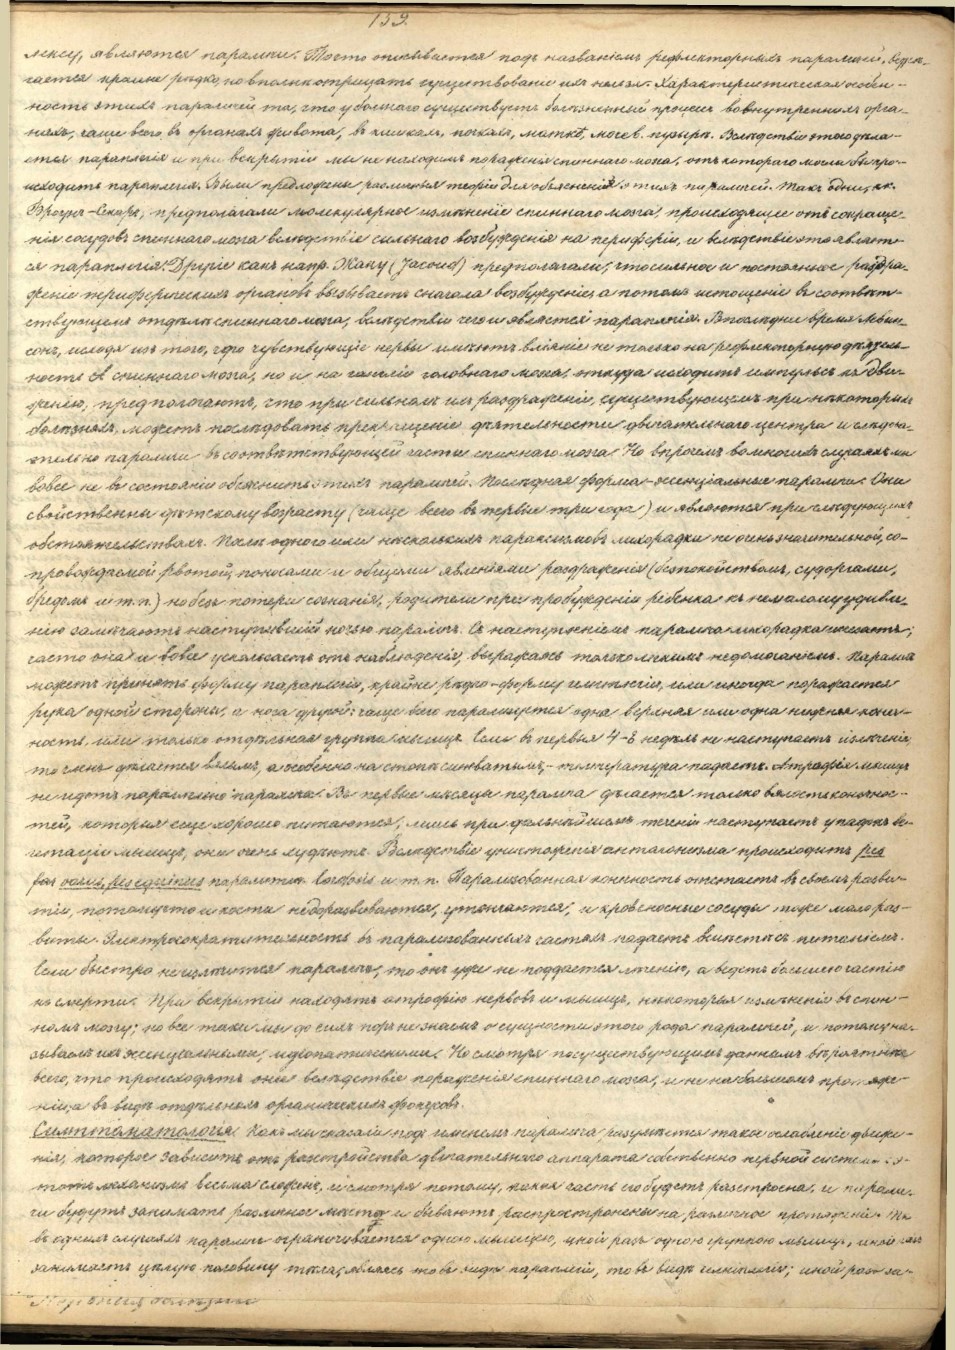 139.
лексу, являются параличи. Часто описывается подъ названіемъ рефлекторныхъ параличей, встрѣ-
чается крайне рѣдко, но вполнѣ отрицать существованіе ихъ нельзя. Характеристическая особен-
ность этихъ параличей та, что у больнаго существуетъ болѣзненный процессъ во внутреннихъ орга-
нахъ, чаще всего въ органахъ живота, въ кишкахъ, почкахъ, маткѣ, мочев. пузырѣ. Вслѣдствіе этого дѣла-
ется параплегія и при вскрытіи мы не находимъ пораженія спиннаго мозга, отъ котораго могла бы про-
исходить параплегія. Были предложены различныя теоріи для объясненія этихъ параличей. Такъ одни, какъ
Броунъ-Секаръ, предполагали молекулярное измѣненіе спиннаго мозга, происходящее отъ сокраще-
нія сосудовъ спиннаго мозга вслѣдствіе сильнаго возбужденія на периферіи, и вслѣдствіе этого являет-
ся параплегія. Другіе какъ напр. Жаку (Jacoud) предполагали, что сильное и постоянное раздра-
женіе периферическихъ органовъ вызываетъ сначала возбужденіе, а потомъ истощеніе въ соотвѣт-
ствующемъ отдѣлѣ спиннаго мозга, вслѣдствіи чего и является параплегія. Въ послѣдн. время Левин-
сонъ, исходя изъ того, что чувствующіе нервы имѣютъ вліяніе не только на рефлекторную дѣятель-
ность спиннаго мозга, но и на головнаго мозга, откуда исходитъ импульсъ къ дви-
женію, предполагаютъ, что при сильномъ ихъ раздраженіи, существующемъ при нѣкоторыхъ
болѣзняхъ, можетъ послѣдовать прекращеніе дѣятельности двигательнаго центра и слѣдова-
тельно параличи въ соотвѣтствующей части спиннаго мозга. Но впрочемъ во многихъ случаяхъ мы
вовсе не въ состояніи объяснить этихъ параличей. Послѣдняя форма - эсенціальные параличи. Они
свойственны дѣтскому возрасту (чаще всего въ первые три года) и являются при слѣдующихъ
обстоятельствахъ. Послѣ одного или нѣсколькихъ пароксизмовъ лихорадки не очень значительной, со-
провождаемой рвотой, поносами и общими явленіями раздраженія (безпокойствомъ, судоргами,
бредомъ и т. п.) но безъ потери сознанія, родители при пробужденіи ребенка къ немалому удивле-
нію замѣчаютъ наступившій ночью параличъ. Съ наступленіемъ паралича лихорадка исчезаетъ;
часто она и вовсе ускользаетъ отъ наблюденія, выражаясь только легкимъ недомоганіемъ. Параличъ
можетъ принять форму параплегіи, крайне рѣдко - форму гемиплегіи, или иногда поражается
рука одной стороны, а нога другой: чаще всего парализуется одна верхняя или одна нижняя конеч-
ность, или только отдѣльная группа мышцъ. Если въ первыя 4-8 недѣль не наступаетъ излеченіе,
то членъ дѣлается вялымъ, а особенно на стопѣ синеватымъ, - температура падаетъ. Атрофія мышцъ
не идетъ параллельно параличу. Въ первые мѣсяцы паралича дѣлается только вялость конечнос-
тей, которыя еще хорошо питаются, лишь при дальнѣйшемъ теченіи наступаетъ упадокъ ве-
гетаціи мышцъ, они очень худѣютъ. Вслѣдствіе уничтоженія антагонизма происходитъ pes
varus, pes equinus паралитич. lordosis и т. п. Парализованная конечность отстаетъ въ своемъ разви-
тіи, потому что и кости недоразвиваются, утончаются, и кровеносные сосуды тоже мало раз-
виты. Электросократительность въ парализованныхъ частяхъ падаетъ вмѣстѣ съ питаніемъ.
Если быстро не излѣчится параличъ, то онъ уже не поддается лѣченію, а ведетъ большею частію
къ смерти. При вскрытіи находятъ атрофію нервовъ и мышцъ, нѣкоторыя измѣненія въ спин-
номъ мозгу; но все таки мы до сихъ поръ не знаемъ о сущности этого рода параличей, и потому на-
зываемъ ихъ эсенціальными, идіопатическими. Но смотря по существующимъ даннымъ вѣроятнѣе
всего, что происходятъ они вслѣдствіе пораженія спиннаго мозга, и не на большомъ протяже-
ніи, а въ видѣ отдѣльныхъ ограниченныхъ фокусовъ.
Симптоматологія. Какъ мы сказали подъ именемъ паралича разумѣется такое ослабленіе движе-
нія, которое зависитъ отъ разстройства двигательнаго аппарата собственно нервной системы. Э-
тотъ механизмъ весьма сложенъ, и смотря потому, какая часть его будетъ разстроена, и парали-
чи будутъ занимать различное мѣсто и бываютъ распространены на различное протяженіе. Такъ
въ однихъ случаяхъ параличъ ограничивается одною мышцею, иной разъ одною группою мышцъ, иной разъ
занимаетъ цѣлую половину тѣла, являясь то въ видѣ параплегіи, то въ видѣ гемиплегіи; иной разъ за-
Нервныя болѣзни